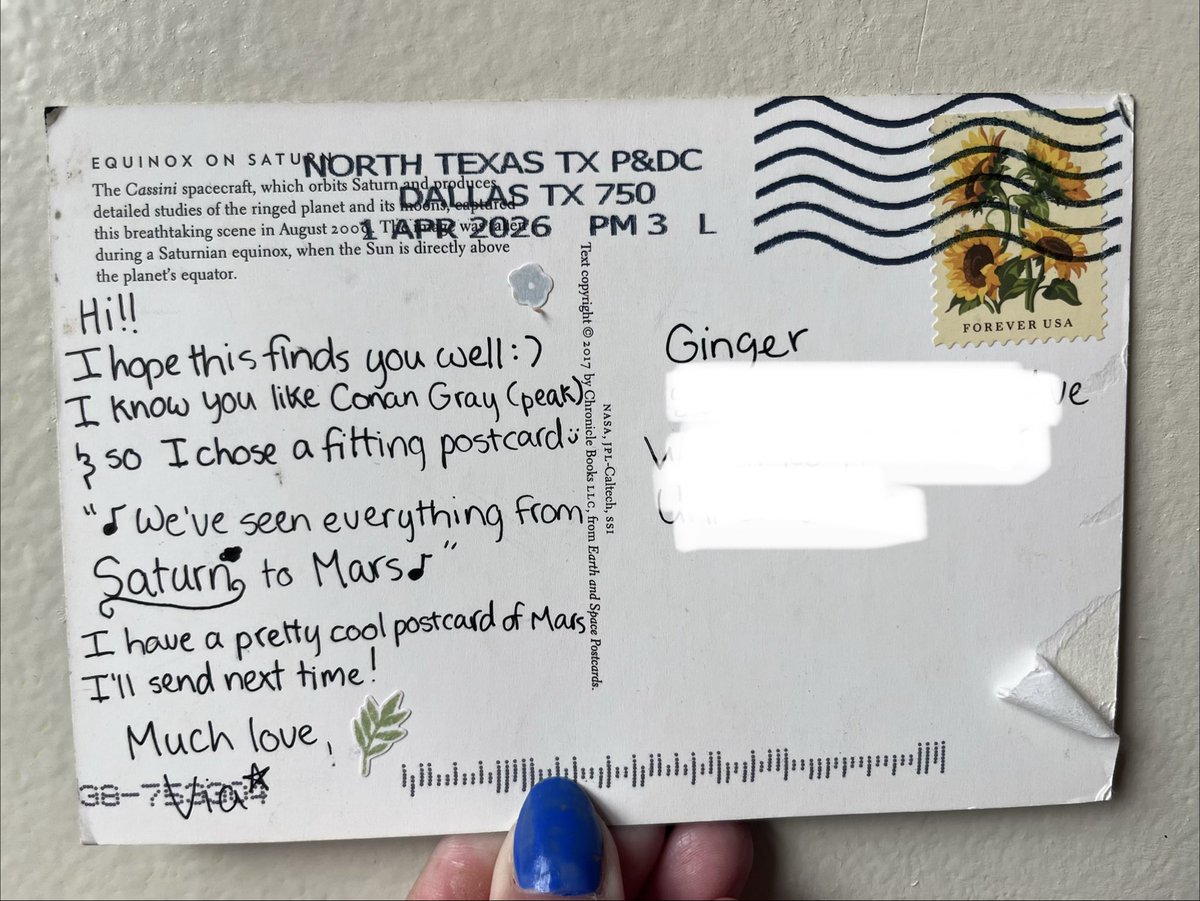 EQUINOX ON SATURN
The Cassini spacecraft, which orbits Saturn and produces
detailed studies of the ringed planet and its moons, captured
this breathtaking scene in August 2009. The image was taken
during a Saturnian equinox, when the Sun is directly above
the planet's equator.
NORTH TEXAS TX P&DC
DALLAS TX 750
1 APR 2026 PM 3 L
FOREVER USA
Hi!!
I hope this finds you well :)
I know you like Conan Gray (peak)
& so I chose a fitting postcard :)
"♪ We've seen everything from
Saturn to Mars♪"
I have a pretty cool postcard of Mars
I'll send next time!
Much love,
Via
Text copyright © 2017 by Chronicle Books LLC, from Earth and Space Postcards.
NASA, JPL-Caltech, SSI
Ginger